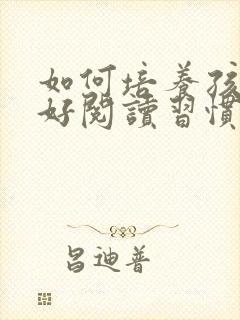 如何培养孩
好閱讀習慣
昌迪普